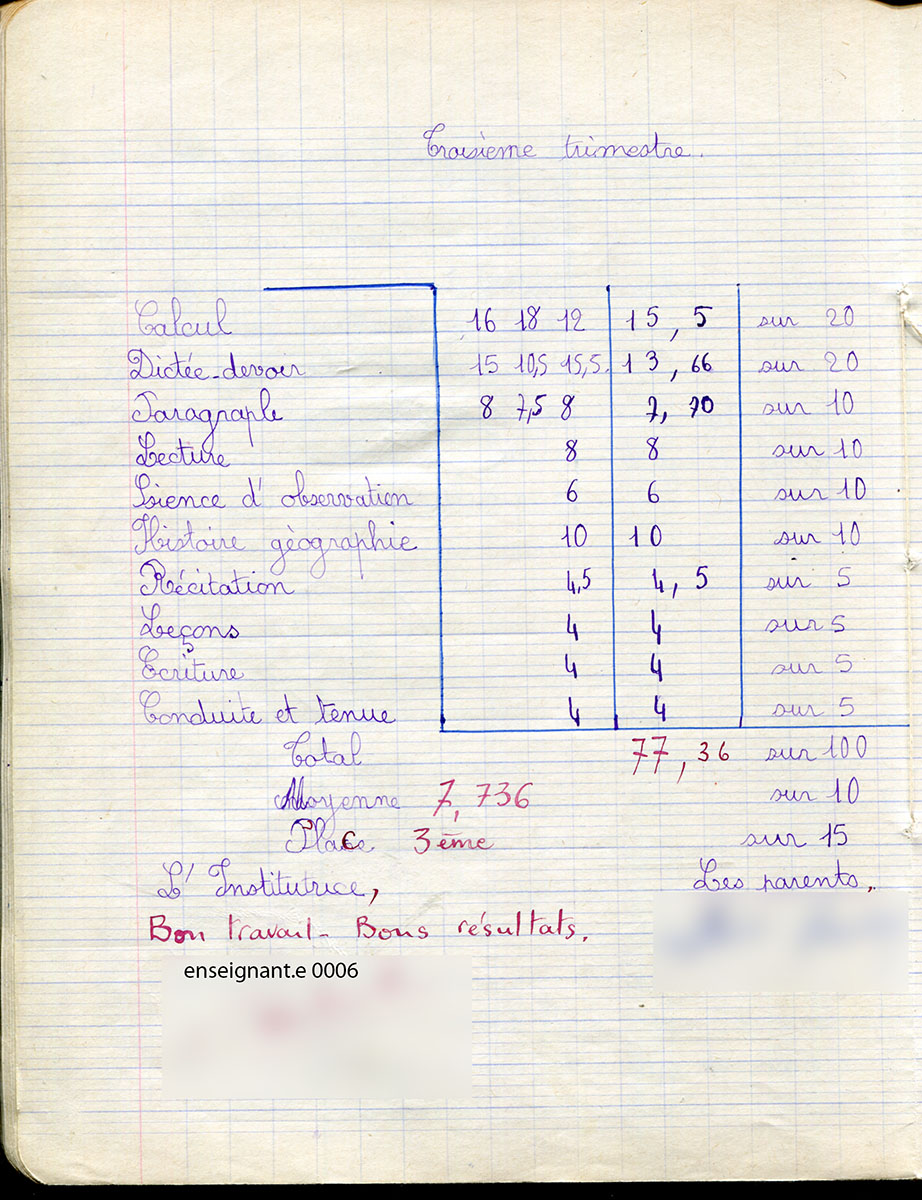 Troisième trimestre.
Calcul 16 18 12 15,5 sur 20
Dictée-devoir 15 10,5 15,5 13,66 sur 20
Paragraphe 8 7,5 8 7,70 sur 10
Lecture 8 8 sur 10
Sience d'observation 6 6 sur 10
Histoire géographie 10 10 sur 10
Récitation 4,5 4,5 sur 5
Leçons 4 4 sur 5
Ecriture 4 4 sur 5
Conduite et tenue 4 4 sur 5
Total 77,36 sur 100
Moyenne 7,736 sur 10
Place 3ème sur 15
L'Institutrice, Les parents,
Bon travail - Bons résultats.
enseignant.e 0006